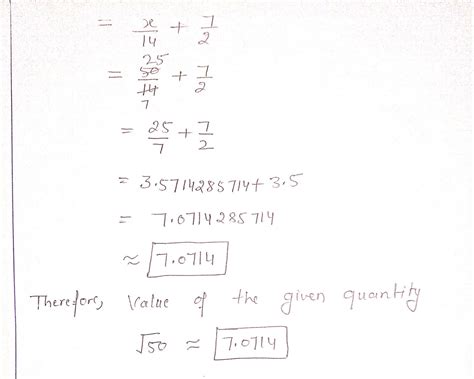 = x/14 + 7/2
= 50/14 + 7/2 25 7
= 25/7 + 7/2
= 3.5714285714 + 3.5
= 7.0714285714
≈ 7.0714
Therefore, Value of the given quantity
√50 ≈ 7.0714